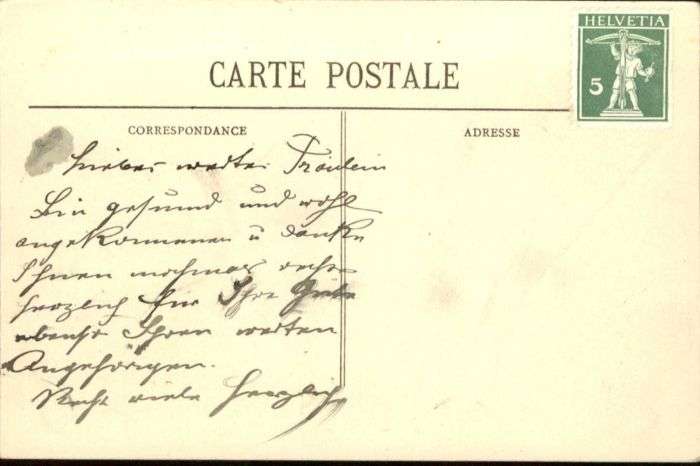 HELVETIA
5
CARTE POSTALE
CORRESPONDANCE
ADRESSE
Liebes wertes Fräulein
Bin gesund und wohl
angekommenen u danke
Ihnen nochmals recht
herzlich für Ihre Güte
ebenso Ihren werten
Angehörigen.
Recht viele herzliche